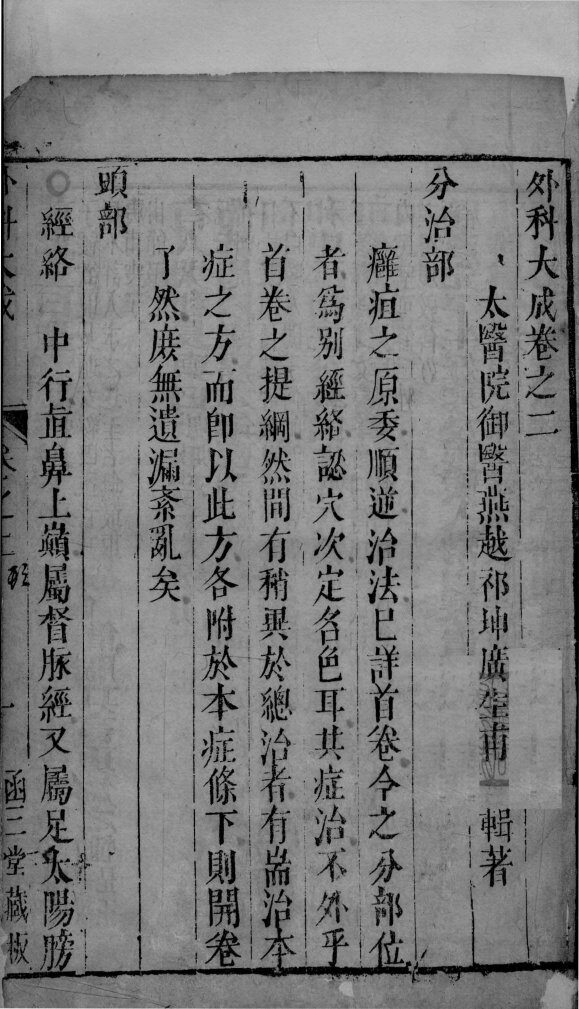 外科大成卷之二
太醫院御醫燕越祁坤廣生甫 輯著
分治部
癰疽之原委順逆治法已詳首卷今之分部位
者爲別經絡認穴次定名色耳其症治不外乎
首卷之提綱然間有稍異於總治者有耑治本
症之方而卽以此方各附於本症條下則開卷
了然庻無遺漏紊亂矣
頭部
○經絡 中行直鼻上巔屬督脉經又屬足太陽膀
外科大成 卷之二 一 函三堂藏板